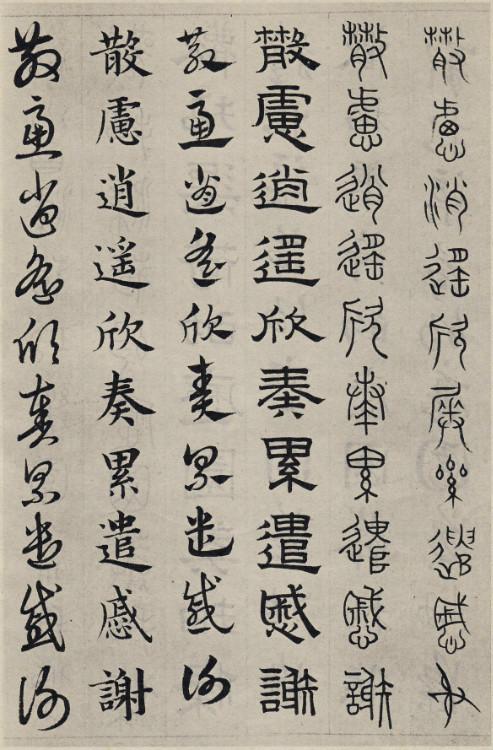 散慮逍遥欣奏累遣慼謝
散慮逍遥欣奏累遣慼謝
散慮逍遥欣奏累遣慼謝
散慮逍遥欣奏累遣慼謝
散慮逍遥欣奏累遣慼謝
散慮逍遥欣奏累遣慼謝